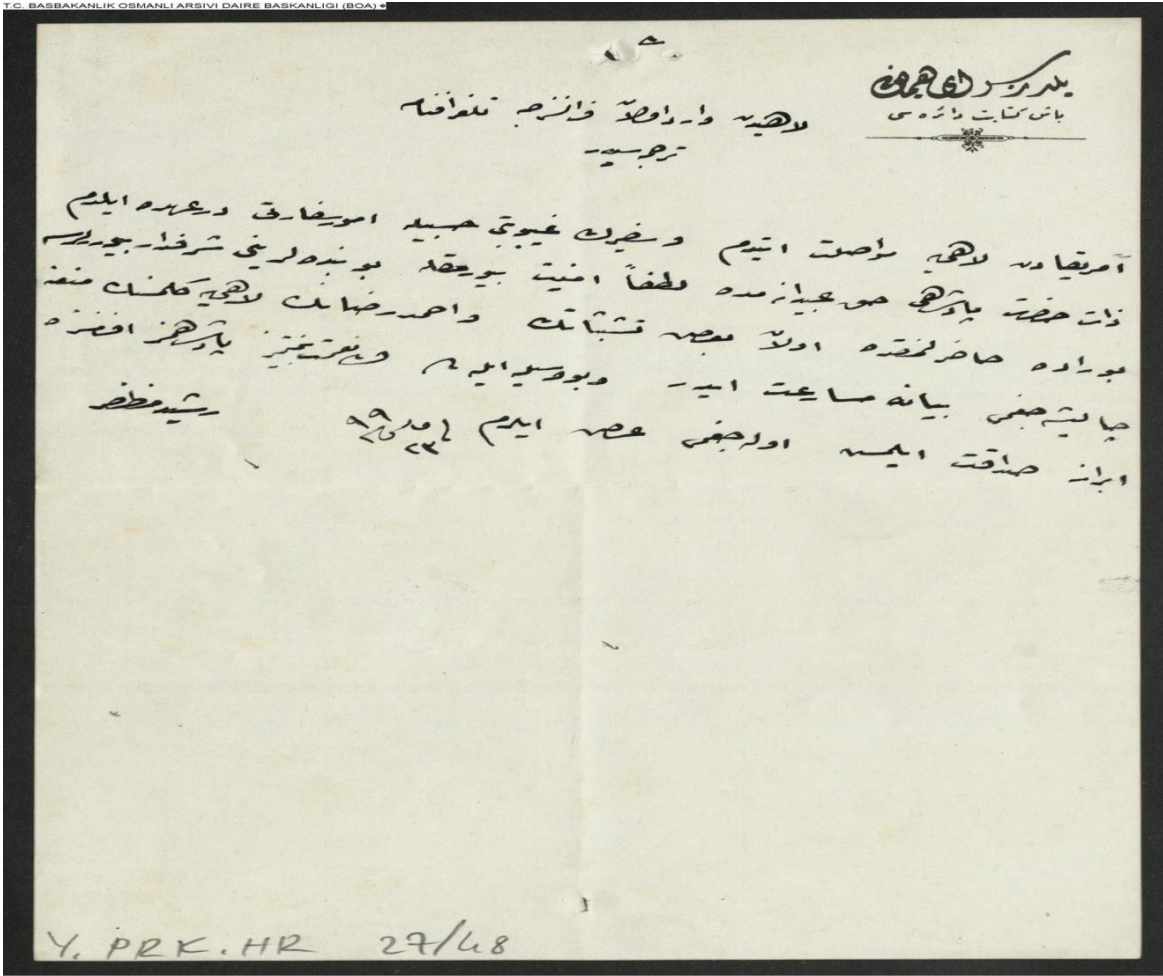 T.C. BASBAKANLIK OSMANLI ARSIVI DAIRE BASKANLIGI (BOA)
يلدز سراى همايونى
باش كتابت دائره سى
لاهيدن وارد اولان فرانسزجه تلغرافنامه
ترجمه سيدر
آمريقادن لاهيه مواصلت ايتدم وسفيرك غيبوبتى حسبيله امور سفارتى درعهده ايلدم
ذات حضرت پادشاهى حق عبيدانه مده لطفاً امنيت بيوره رق بو بنده لرينى شرفدار بيوررلرسه
بوراده حاضر اولان بعض تشبثاتك واحمد رضانك لاهيه كلمسنك منعنه
چاليشه جغمى بيانه مسارعت ايدر وبو وسيله ايله ولى نعمت پادشاهمز افندمزه
ابراز صداقت ايلمش اوله جغمى عرض ايلرم ٢٣ مايس ٩٩
رشيد مظفر
Y. PRK. HR 27/48